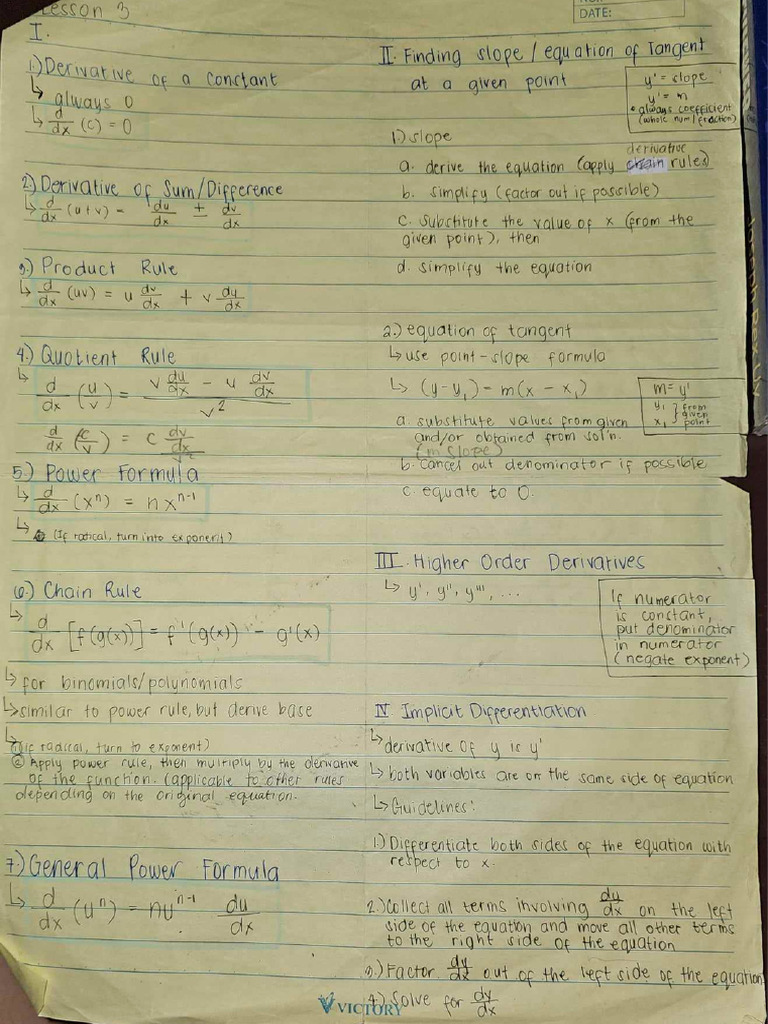 Lesson 3
DATE:
I.
1.) Derivative of a Constant
↳ always 0
↳ d/dx (c) = 0
2.) Derivative of Sum/Difference
↳ d/dx (u+v) = du/dx ± dv/dx
3.) Product Rule
↳ d/dx (uv) = u dv/dx + v dy/dx
4.) Quotient Rule
↳ d/dx (u/v) = (v du/dx - u dv/dx) / v²
d/dx (c/v) = c dv/dx / v²
5.) Power Formula
↳ d/dx (xⁿ) = nxⁿ⁻¹
↳ (If radical, turn into exponent)
6.) Chain Rule
↳ d/dx [f(g(x))] = f'(g(x)) - g'(x)
↳ for binomials/polynomials
↳ similar to power rule, but derive base
↳
① if radical, turn to exponent)
② Apply power rule, then multiply by the derivative
of the function. (applicable to other rules
depending on the original equation.
7.) General Power Formula
↳ d/dx (uⁿ) = nuⁿ⁻¹ du/dx
II. Finding slope / equation of Tangent
at a given point
y' = slope
y' = m
• always coefficient
(whole num / fraction)
1.) slope
derivative
a. derive the equation (apply chain rules)
b. simplify (factor out if possible)
c. substitute the value of x (from the
given point), then
d. simplify the equation
2.) equation of tangent
↳ use point-slope formula
↳ (y-y₁) = m(x - x₁)
m = y'
y₁ } from
given
x₁ point
a. substitute values from given
and/or obtained from sol'n.
(m slope)
b. cancel out denominator if possible
c. equate to 0.
III. Higher Order Derivatives
↳ y', y'', y''', ...
If numerator
is constant,
put denominator
in numerator
(negate exponent)
IV. Implicit Differentiation
↳ derivative of y is y'
↳ both variables are on the same side of equation
↳ Guidelines:
1.) Differentiate both sides of the equation with
respect to x.
2.) Collect all terms involving dy/dx on the left
side of the equation and move all other terms
to the right side of the equation
3.) Factor dy/dx out of the left side of the equation
4.) Solve for dy/dx
VICTORY